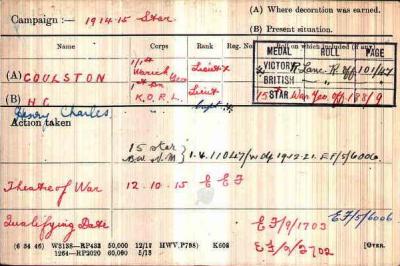 Campaign :— 1914-15 Star
(A) Where decoration was earned.
(B) Present situation.
Name Corps Rank Reg. No. Roll on which included (if any)
MEDAL ROLL PAGE
VICTORY R. Lanc. R. Off 101/47
BRITISH
15 STAR War Yeo off 188/9
(A) COULSTON 1/1st Warwick Yeo Lieut x
(B) H C 1st Bn K.O.R.L. Lieut
Henry Charles Capt
Action taken
15 Star
B.W. & V.M.
EF/5/6006
Theatre of War 12-10-15 E E F
Qualifying Date EF/9/1703 EF/5/6006
EF/3/2702
(6 34 46) W5128—RP433 50,000 12/17 HWV.P788) K608 [OVER.
1264—RP2020 60,000 5/18